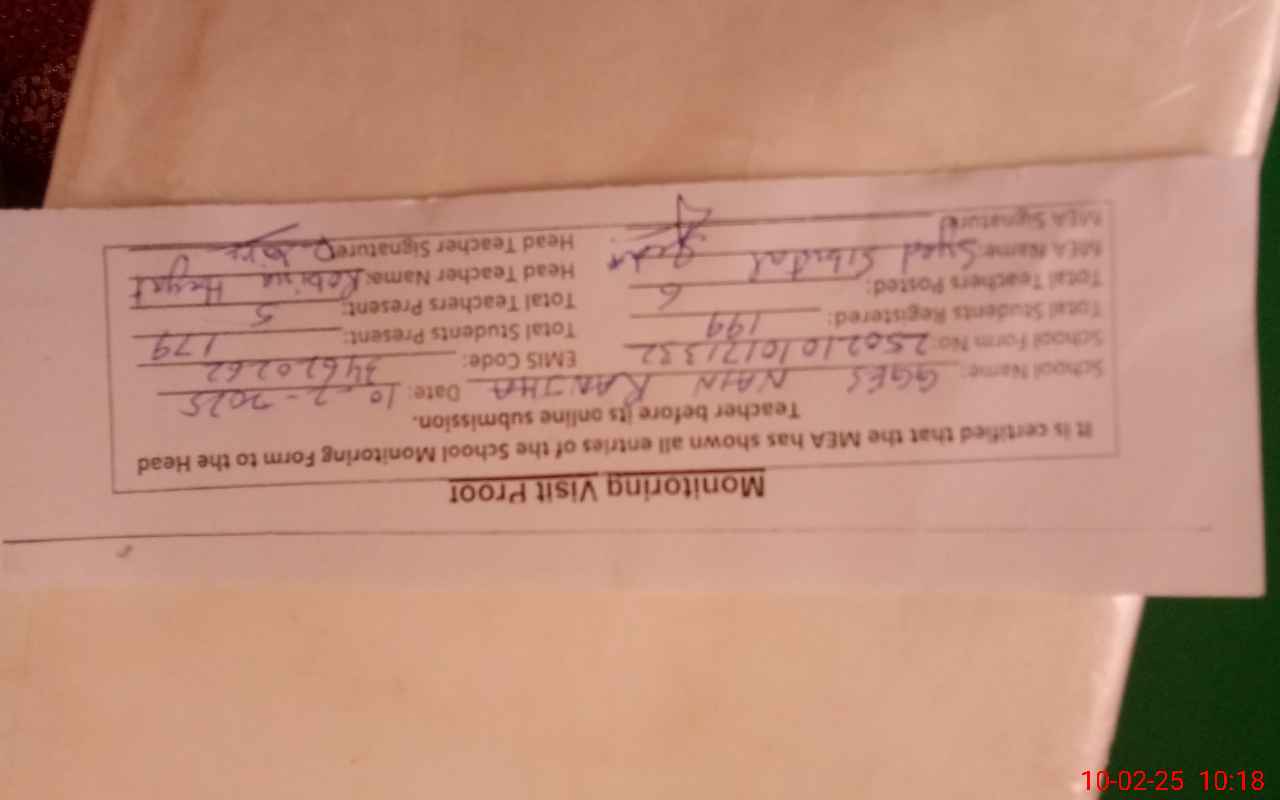 Monitoring Visit Proof
It is certified that the MEA has shown all entries of the School Monitoring Form to the Head
Teacher before its online submission.
School Name: GGES NAIN RANJHA Date: 10-2-2025
School Form No: EMIS Code: 34620262
Total Students Registered: 199 Total Students Present: 179
Total Teachers Posted: 6 Total Teachers Present: 5
MEA Name: Syed Head Teacher Name: Robina Hayat
MEA Signature Head Teacher Signature
10-02-25 10:18